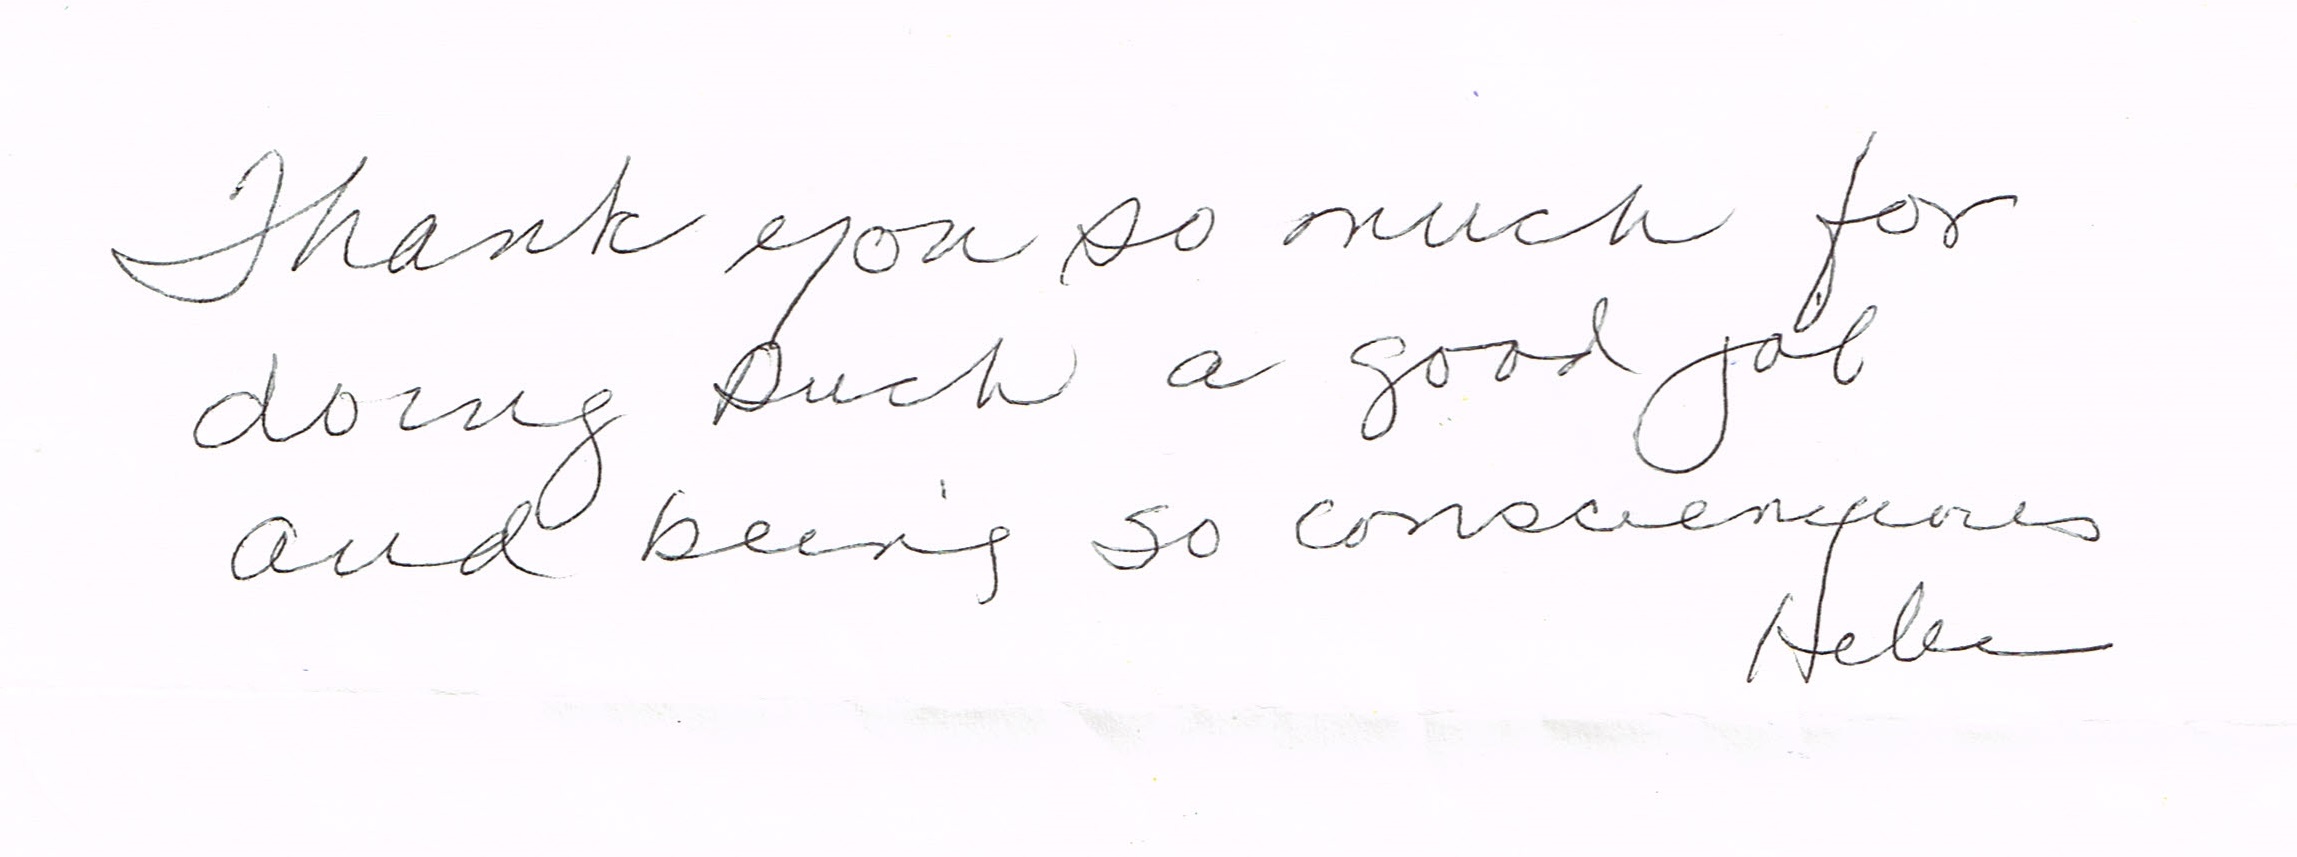 Thank you so much for
doing such a good job
and being so conscientious